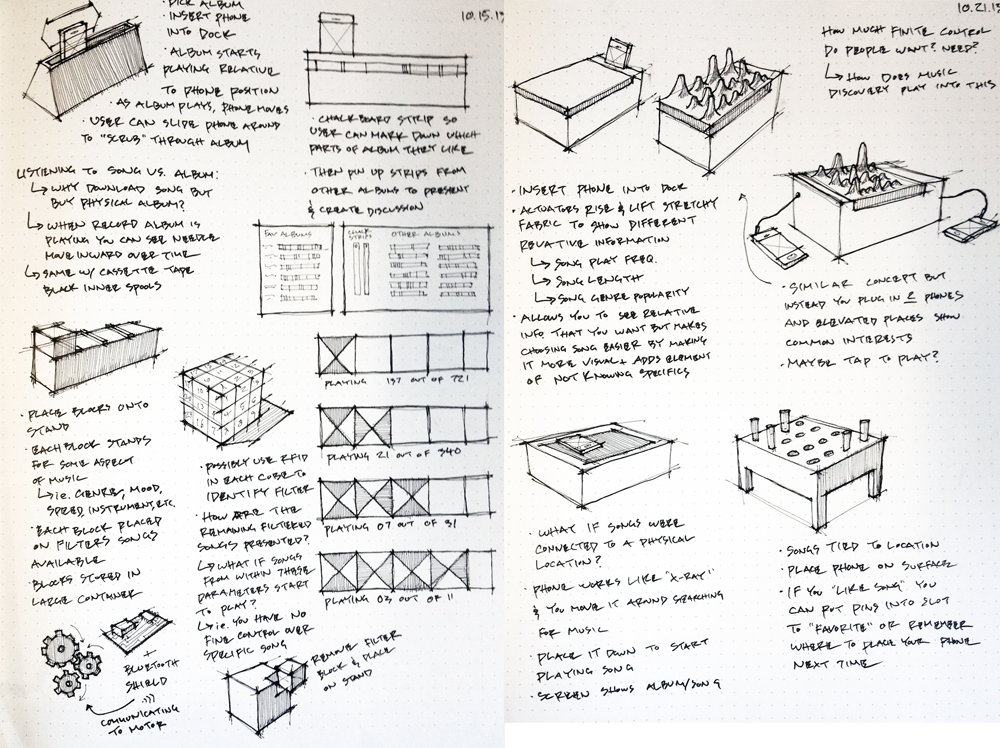 · PICK ALBUM
· INSERT PHONE
INTO DOCK
· ALBUM STARTS
PLAYING RELATIVE
TO PHONE POSITION
· AS ALBUM PLAYS, PHONE MOVES
· USER CAN SLIDE PHONE AROUND
TO "SCRUB" THROUGH ALBUM
LISTENING TO SONG VS. ALBUM:
↳ WHY DOWNLOAD SONG BUT
BUY PHYSICAL ALBUM?
↳ WHEN RECORD ALBUM IS
PLAYING YOU CAN SEE NEEDLE
MOVE INWARD OVER TIME
↳ SAME W/ CASSETTE TAPE
BLACK INNER SPOOLS
· PLACE BLOCKS ONTO
STAND
· EACH BLOCK STANDS
FOR SOME ASPECT
OF MUSIC
↳ i.e. GENRE, MOOD,
SPEED, INSTRUMENT, ETC.
· EACH BLOCK PLACED
ON FILTERS SONGS
AVAILABLE
· BLOCKS STORED IN
LARGE CONTAINER
+
BLUETOOTH
SHIELD
COMMUNICATING
TO MOTOR
10.15.13
· CHALKBOARD STRIP SO
USER CAN MARK DOWN WHICH
PARTS OF ALBUM THEY LIKE
· THEN PIN UP STRIPS FROM
OTHER ALBUMS TO PRESENT
& CREATE DISCUSSION
FAV ALBUMS
CHALK
STRIPS
OTHER ALBUMS
PLAYING 137 OUT OF 721
PLAYING 21 OUT OF 340
PLAYING 07 OUT OF 31
PLAYING 03 OUT OF 11
· POSSIBLY USE RFID
IN EACH CUBE TO
IDENTIFY FILTER
· HOW ARE THE
REMAINING FILTERED
SONGS PRESENTED?
↳ WHAT IF SONGS
FROM WITHIN THESE
PARAMETERS START
TO PLAY?
↳ i.e. YOU HAVE NO
FINE CONTROL OVER
SPECIFIC SONG
REMOVE FILTER
BLOCK & PLACE
ON STAND
10.21.13
HOW MUCH FINITE CONTROL
DO PEOPLE WANT? NEED?
↳ HOW DOES MUSIC
DISCOVERY PLAY INTO THIS
· INSERT PHONE INTO DOCK
· ACTUATORS RISE & LIFT STRETCHY
FABRIC TO SHOW DIFFERENT
RELATIVE INFORMATION
↳ SONG PLAY FREQ.
↳ SONG LENGTH
↳ SONG GENRE POPULARITY
· ALLOWS YOU TO SEE RELATIVE
INFO THAT YOU WANT BUT MAKES
CHOOSING SONG EASIER BY MAKING
IT MORE VISUAL + ADDS ELEMENT
OF NOT KNOWING SPECIFICS
· SIMILAR CONCEPT BUT
INSTEAD YOU PLUG IN 2 PHONES
AND ELEVATED PLACES SHOW
COMMON INTERESTS
· MAYBE TAP TO PLAY?
· WHAT IF SONGS WERE
CONNECTED TO A PHYSICAL
LOCATION?
· PHONE WORKS LIKE "X-RAY"
& YOU MOVE IT AROUND SEARCHING
FOR MUSIC
· PLACE IT DOWN TO START
PLAYING SONG
· SCREEN SHOWS ALBUM/SONG
· SONGS TIED TO LOCATION
· PLACE PHONE ON SURFACE
· IF YOU "LIKE SONG" YOU
CAN PUT PINS INTO SLOT
TO "FAVORITE" OR REMEMBER
WHERE TO PLACE YOUR PHONE
NEXT TIME